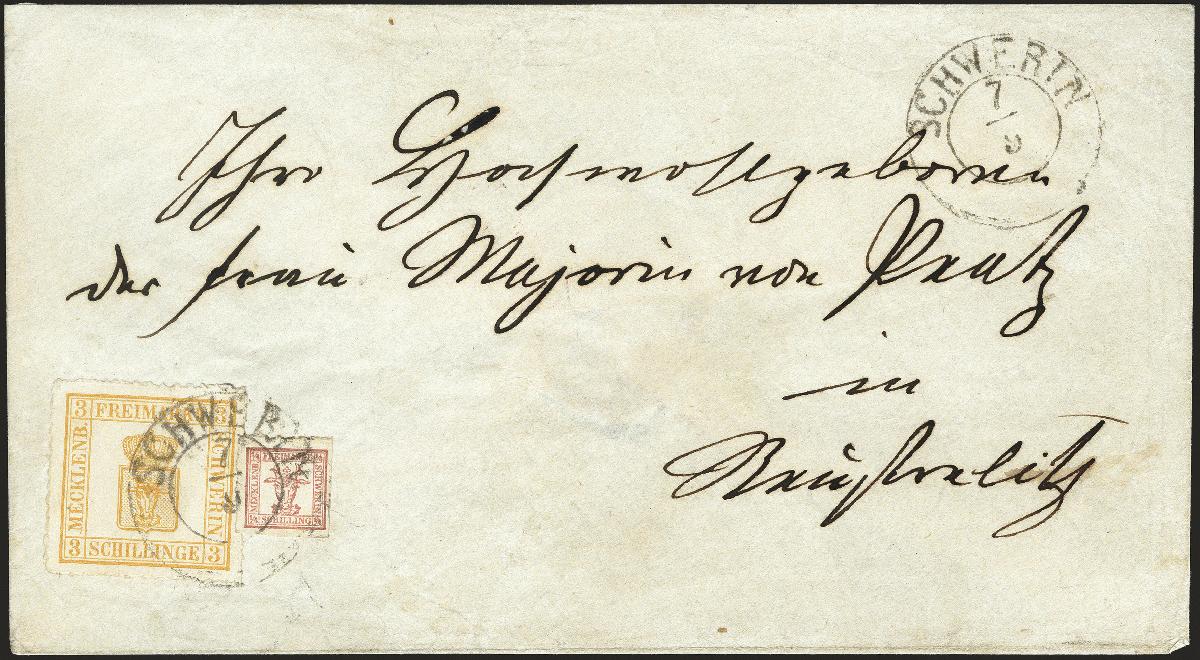 SCHWERIN
7/9
Ihro Hochwohlgeboren
der Frau Majorin von
in
Neustrelitz
3 FREIMARKE 3
MECKLENB.
SCHWERIN
3 SCHILLINGE 3
SCHWERIN
7/9
FREIMARKE
MECKLENB.
SCHWERIN
¼ SCHILLING ¼